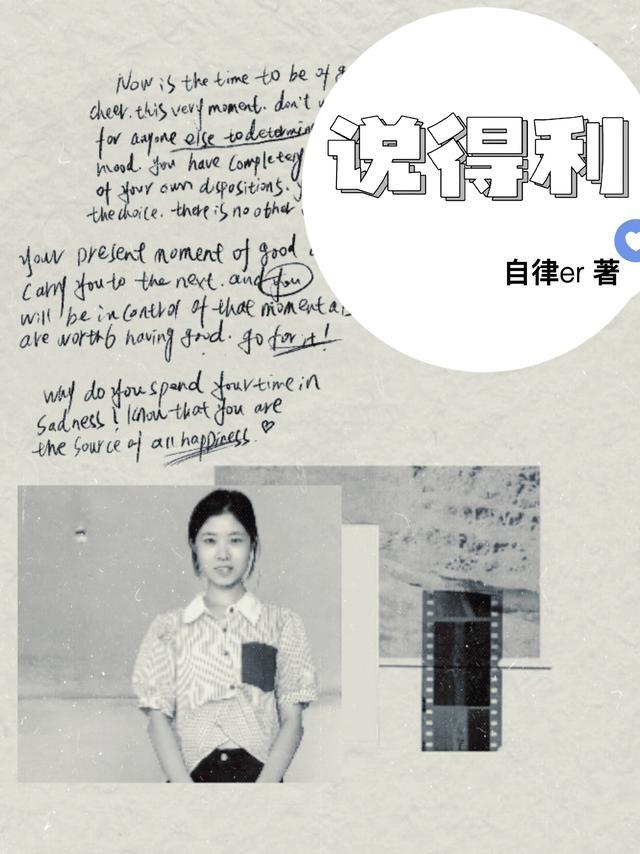 Now is the time to be of g
cheer. this very moment. don't
for anyone else to determin
mood. you have completely
of your own dispositions.
the choice. there is no other
your present moment of good
carry you to the next. and you
will be in control of that moment a
are worth having good. go for it!
why do you spend your time in
sadness! know that you are
the source of all happiness.
说得利
自律er 著